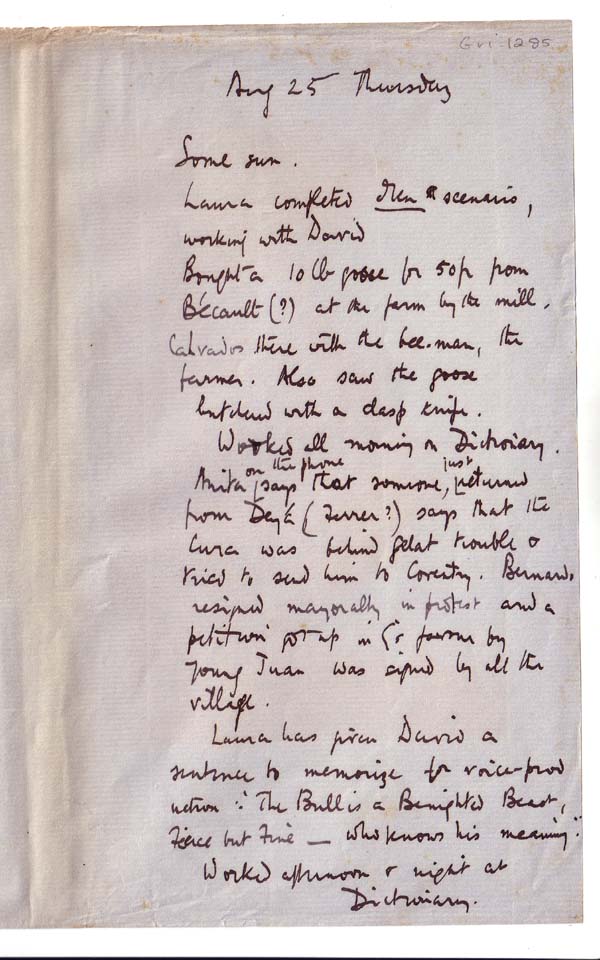 Gri-1285
Aug 25 Thursday
Some sun.
Laura completed Men scenario,
working with David
Bought a 10 lb goose for 50fr from
Bécault (?) at the farm by the mill.
Calvados there with the bee-man, the
farmer. Also saw the goose
butchered with a clasp knife.
Worked all morning on Dictionary.
on the phone just
Anita says that someone, returned
from Deyá (Ferrer?) says that the
Cura was behind Gelat trouble &
tried to send him to Coventry. Bernardo
resigned mayoralty in protest and a
petition got up in G's favour by
young Juan was signed by all the
village.
Laura has given David a
sentence to memorize for voice-prod
uction: "The Bull is a Benighted Beast,
Fierce but Fine — who knows his meaning?"
Worked afternoon & night at
Dictionary.